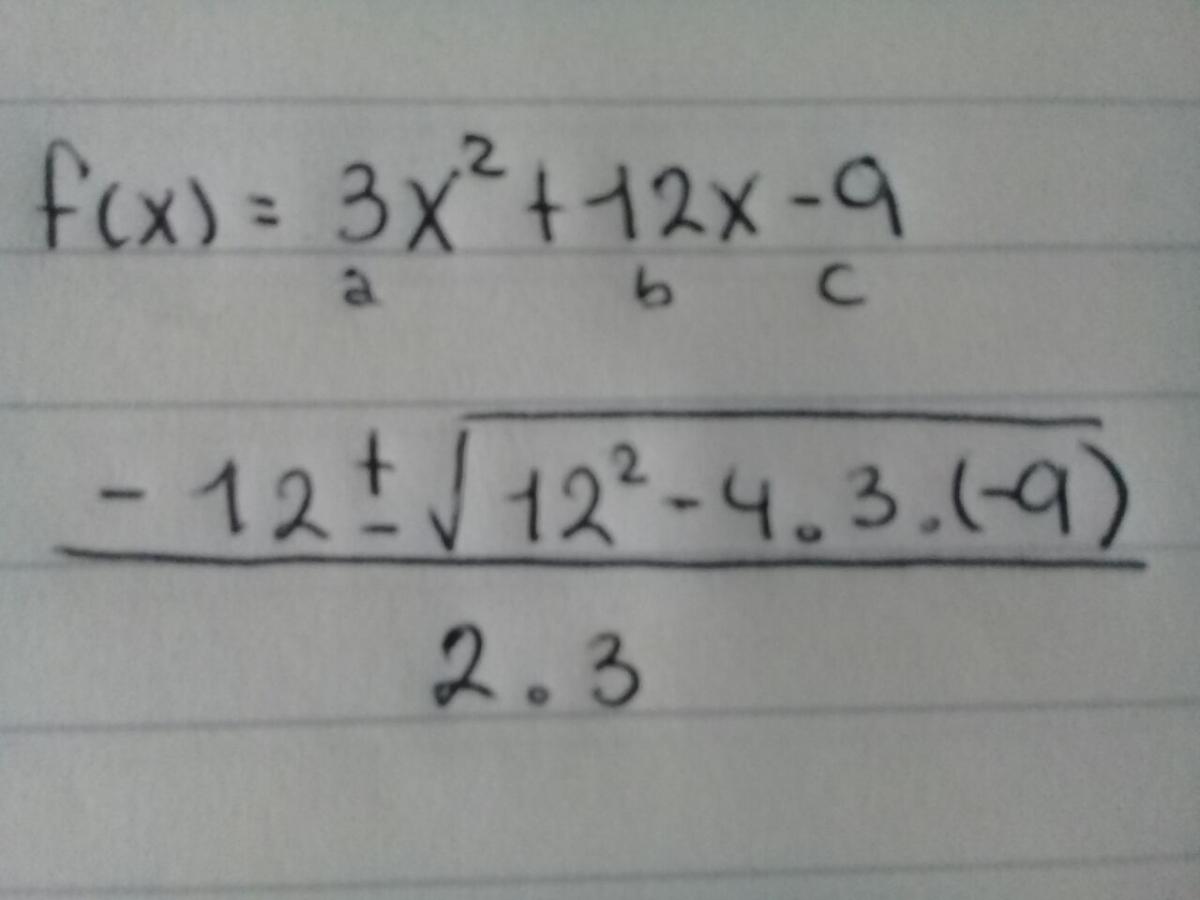 f(x) = 3x² + 12x - 9
a b c
- 12 ± √12² - 4 . 3 . (-9)
2 . 3